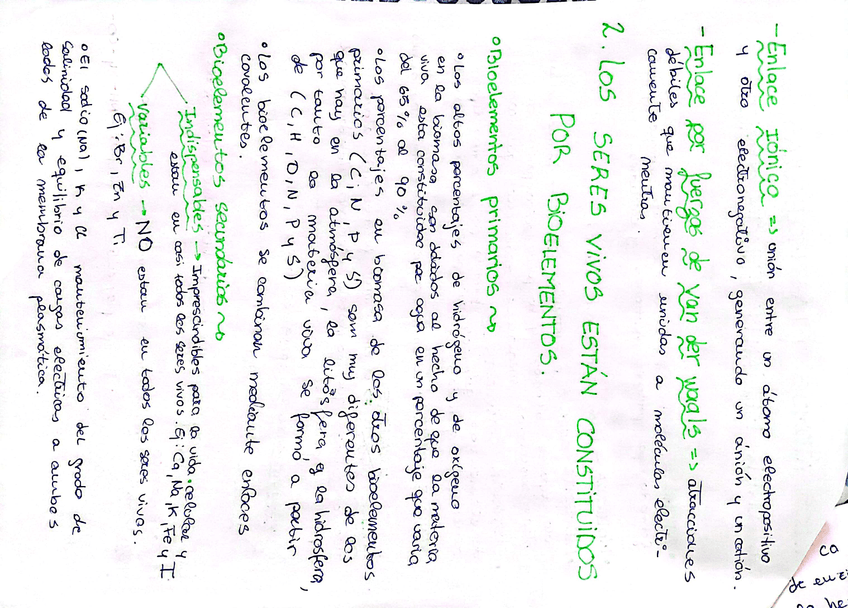 - Enlace Iónico => unión entre un átomo electropositivo
y otro electronegativo, generando un anión y un catión.
- Enlace por fuerzas de Van der Waals => atracciones
débiles que mantienen unidas a moléculas electri-
camente neutras.
2. LOS SERES VIVOS ESTÁN CONSTITUIDOS
POR BIOELEMENTOS.
• Bioelementos primarios ~
• Los altos porcentajes de hidrógeno y de oxígeno
en la biomasa son debidos al hecho de que la materia
viva esta constituida por agua en un porcentaje que varía
del 65% al 90%
• Los porcentajes en biomasa de los otros bioelementos
primarios (C, N, P y S) son muy diferentes de los
que hay en la atmósfera, la litosfera, y la hidrosfera,
por tanto la materia viva se formó a partir
de (C, H, O, N, P y S)
• Los bioelementos se combinan mediante enlaces
covalentes.
• Bioelementos secundarios ~
Indispensables → Imprescindibles para la vida celular y
estan en casi todos los seres vivos. Ej: Ca, Na, K, Fe y I
Variables → NO estan en todos los seres vivos.
Ej: Br, Zn y Ti.
• El sodio (Na), K y Cl mantenimiento del grado de
salinidad y equilibrio de cargas eléctricas a ambos
lados de la membrana plasmática.
ca